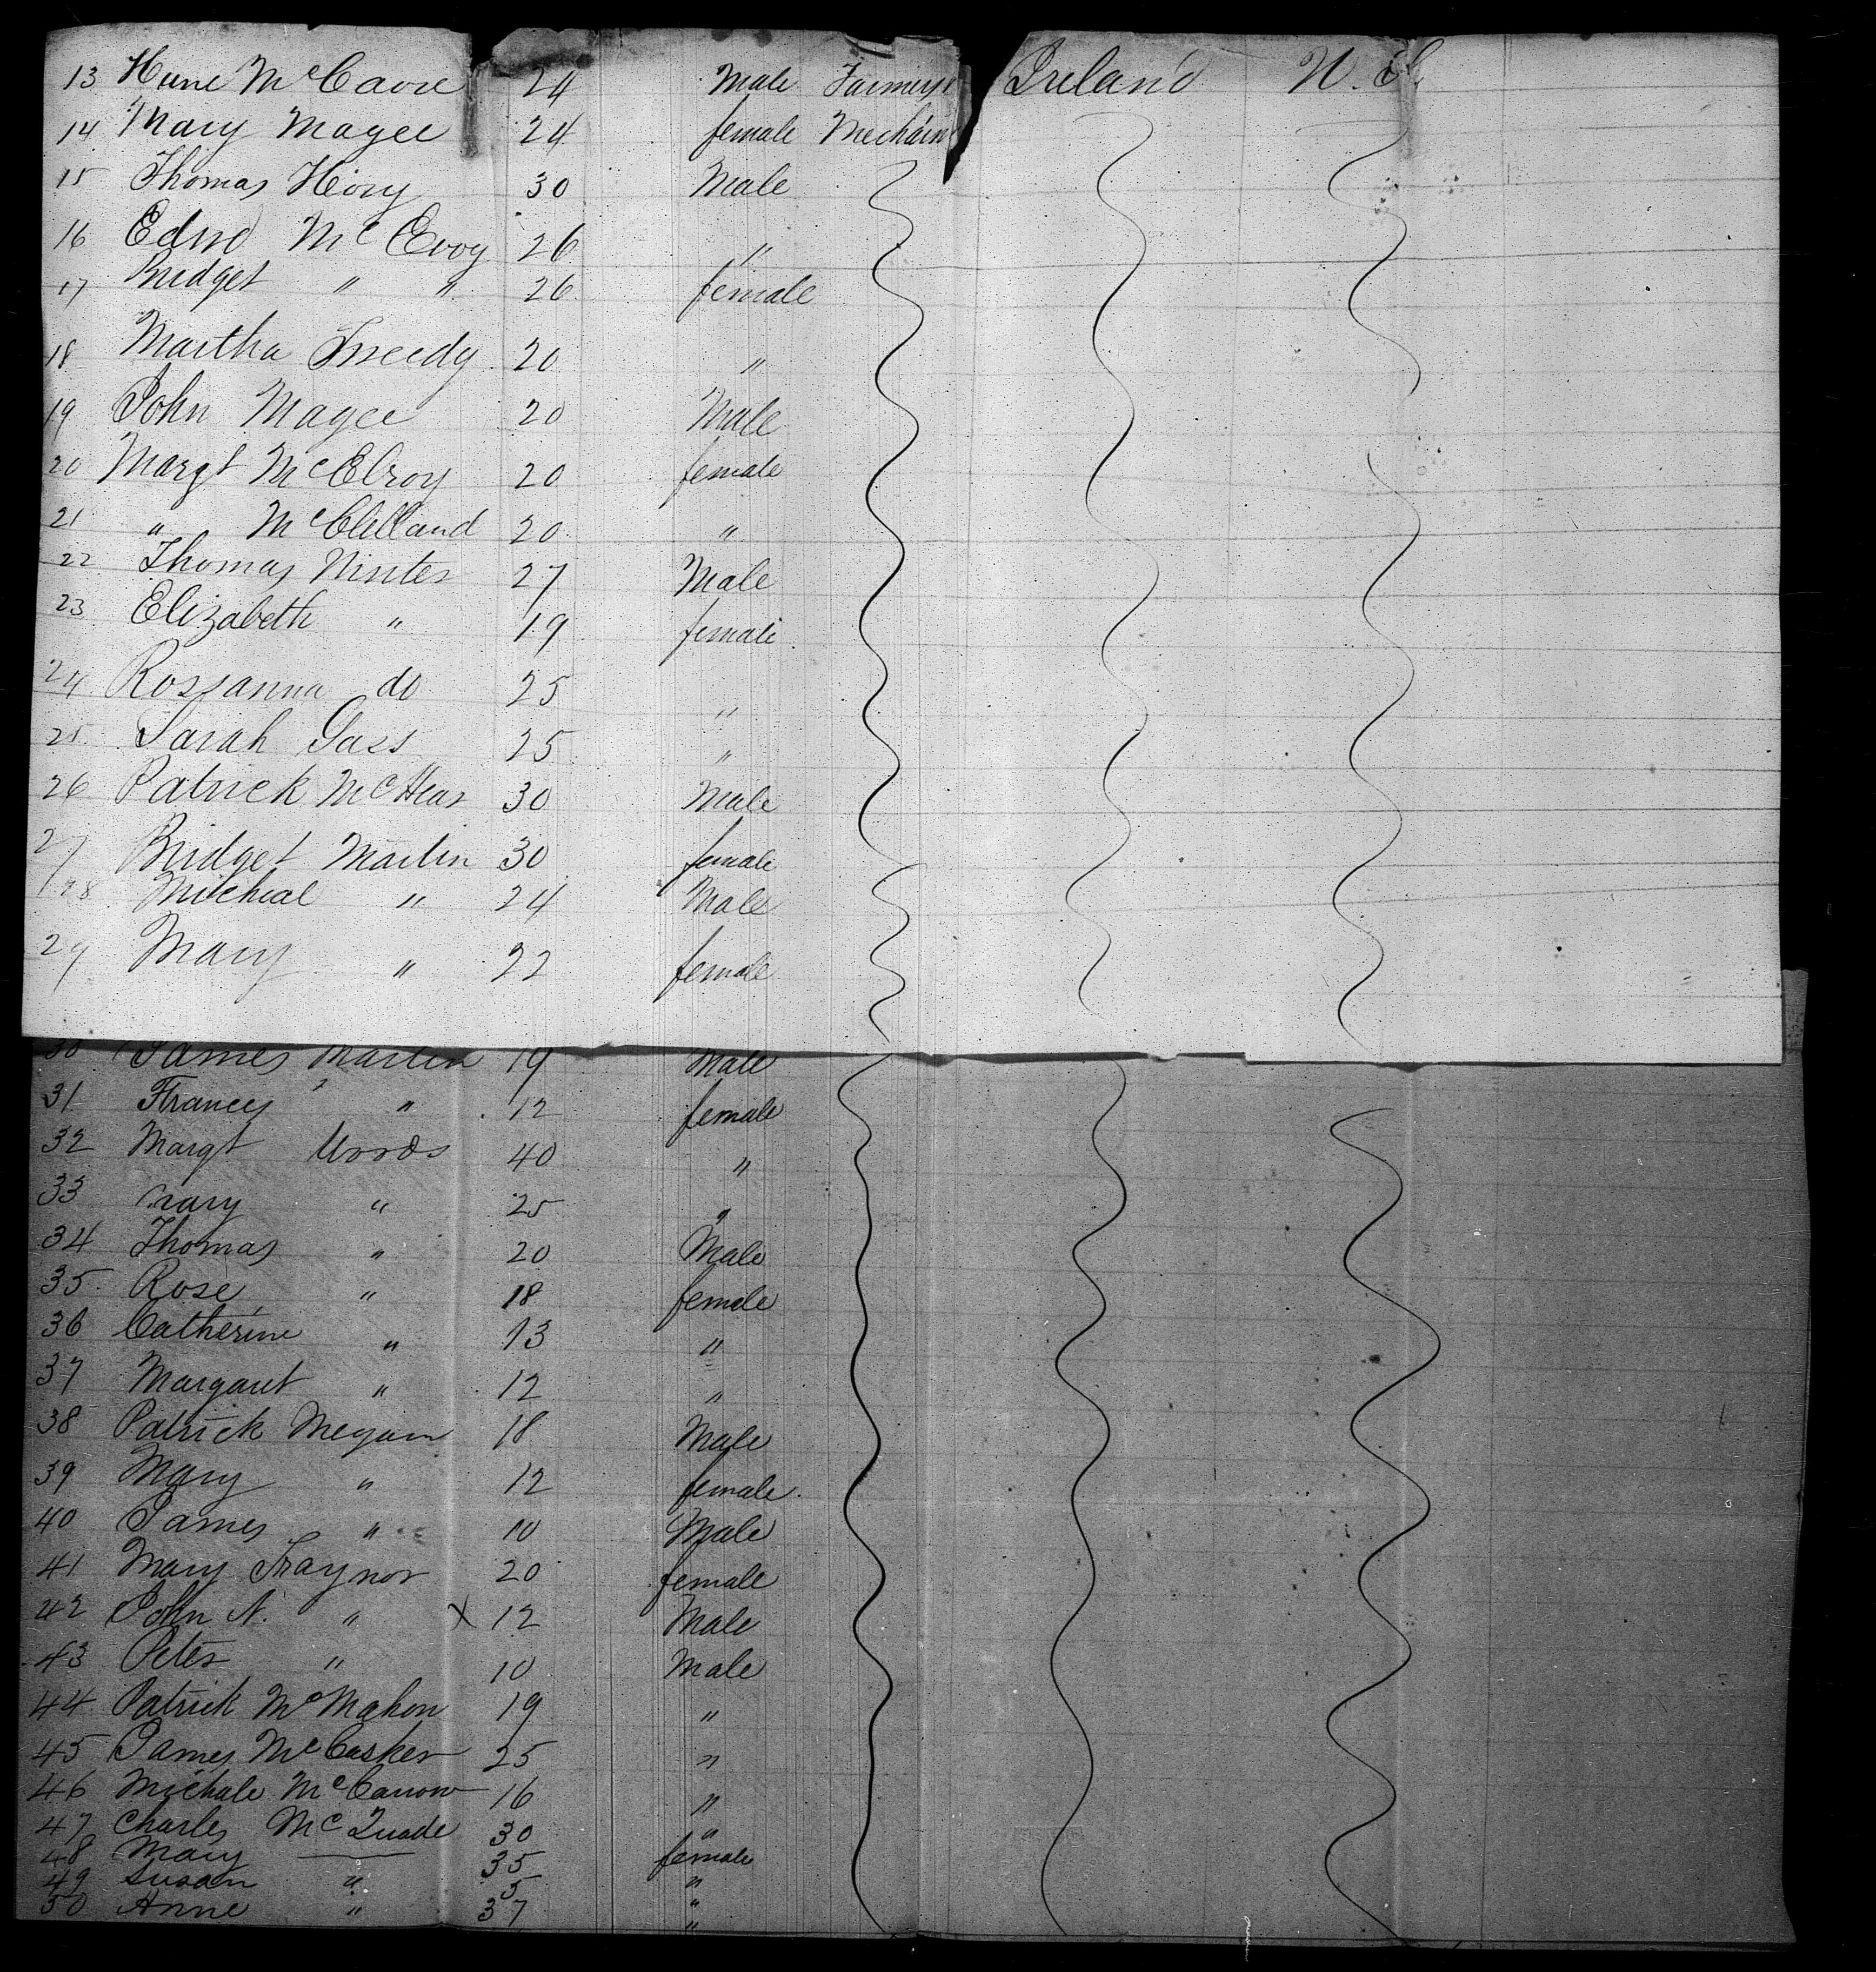 13 Hune McCavre 24 Male Farmers Ireland U. S.
14 Mary Magee 24 female Mechain
15 Thomas Heory 30 Male
16 Edwd McEvoy 26 "
17 Bridget " " 26 female
18 Martha Sneedy 20 "
19 John Magee 20 Male
20 Margt McElroy 20 female
21 " McClelland 20 "
22 Thomas Winter 27 Male
23 Elizabeth " 19 female
24 Rossanna do 25 "
25 Sarah Gass 25 "
26 Patrick McHear 30 Male
27 Bridget Martin 30 female
28 Micheal " 24 Male
29 Mary " 22 female
30 James Martin 19 Male
31 Francy " 12 female
32 Margt Woods 40 "
33 Mary " 25 "
34 Thomas " 20 Male
35 Rose " 18 female
36 Catherine " 13 "
37 Margaret " 12 "
38 Patrick Megann 18 Male
39 Mary " 12 female
40 James " 10 Male
41 Mary Traynor 20 female
42 John N. " X 12 Male
43 Peter " 10 Male
44 Patrick McMahon 19 "
45 James McCasker 25 "
46 Michale McCanow 16 "
47 Charles McQuade 30 "
48 Mary —— 35 female
49 Susan " 5 "
50 Anne " 37 "